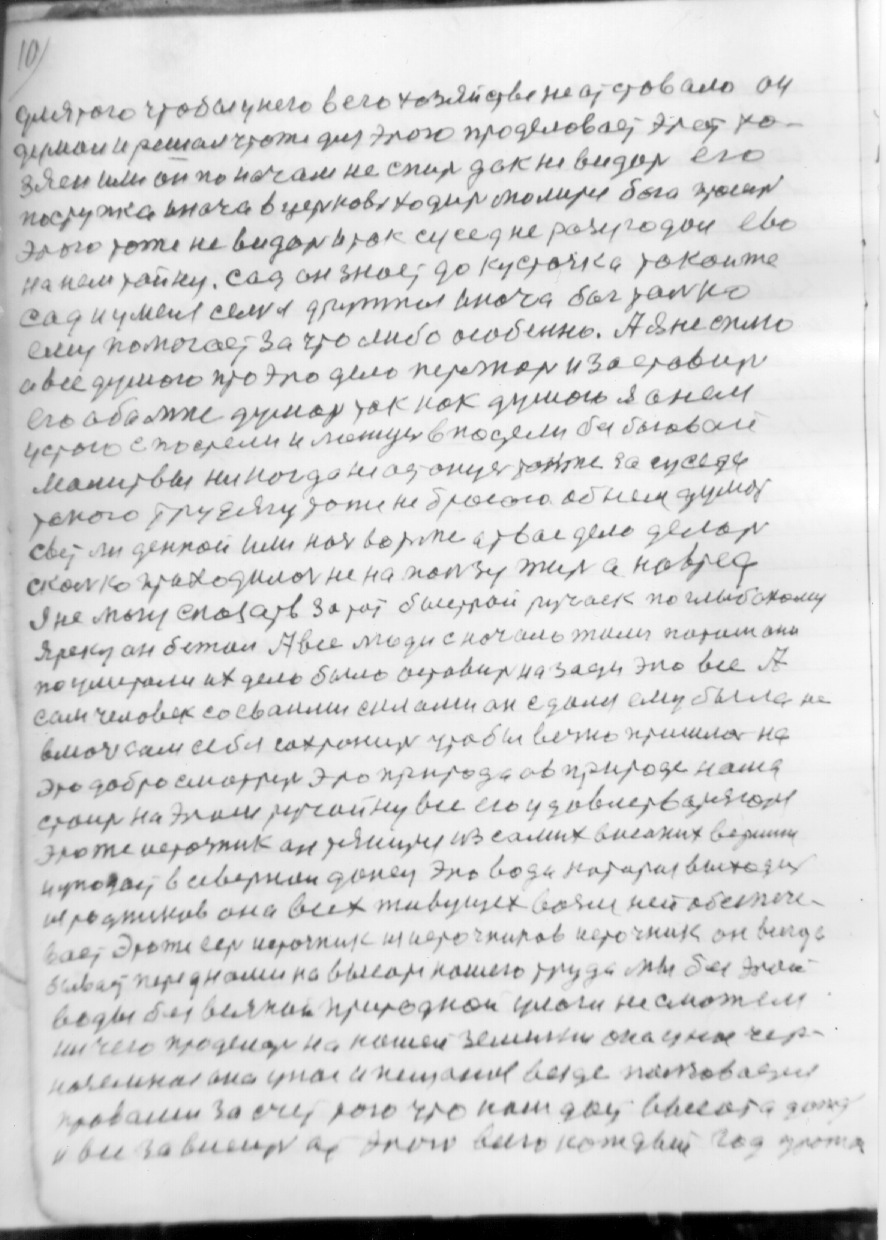 10)
для того чтобы у него в его хозяйстве не отставало он
думал и решал что же для этого проделовает этот хо-
зяен или он по ночам не спит дак не видар его
поступка иначе в церковь ходит молится бога просит
этого тоже не видат и так сусед не разугодал ево
на нем тайну. Сад он знает до кусточка токой же
сад и умеля семя держит иноча бог толко
ему помогает за что либо особенно. А я не сплю
а все думою про это дело
его думат так как думою я о нем
устою с постели и ложусь в постели без боговой
молитвы никогда не останус тоже за суседа
токого трудягу тоже не бросою об нем думат
свет ли денной или ноч все дело делат
сколко приходилос не на ползу жит а на вред
Я не могу сказать за тот быстрай ручаек по глыбокому
яреку он бежал А все люди сночало жили патом они
поумерали их дело было оставит на зади это все А
сам человек со своими силами он сдался ему была не
в моч сам себя сохронит чтобы вечно пришлос на
это добро смотрет это природа а в природе наша
стоит на этом ручайку все его удовлетваряются
это же источник он тянится из самих высоких вершин
и упадает в северной донец это вода каторая выходит
из родников она всех живущех возле ней обеспечи-
вает это же ест источник из источников источник он всегда
бывает перед нами на высоте нашего труда мы без этой
воды без всякой природной влаги не сможем
ничего проделат на нашей земли она у нас чер-
наземная она у нас и песчаная везде ползоваемся
правами за счет того что нам дает высота дожд
и все зависит от этого всего каждый год